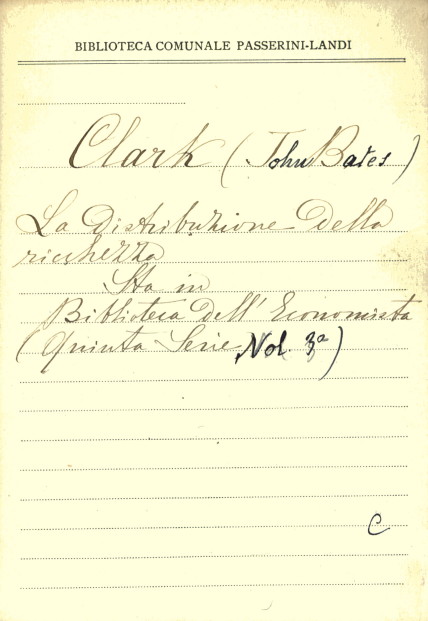 BIBLIOTECA COMUNALE PASSERINI-LANDI
Clark (John Bates)
La distribuzione della
ricchezza
Sta in
Biblioteca dell'Economista
(Quinta Serie, Vol. 3ª)
C